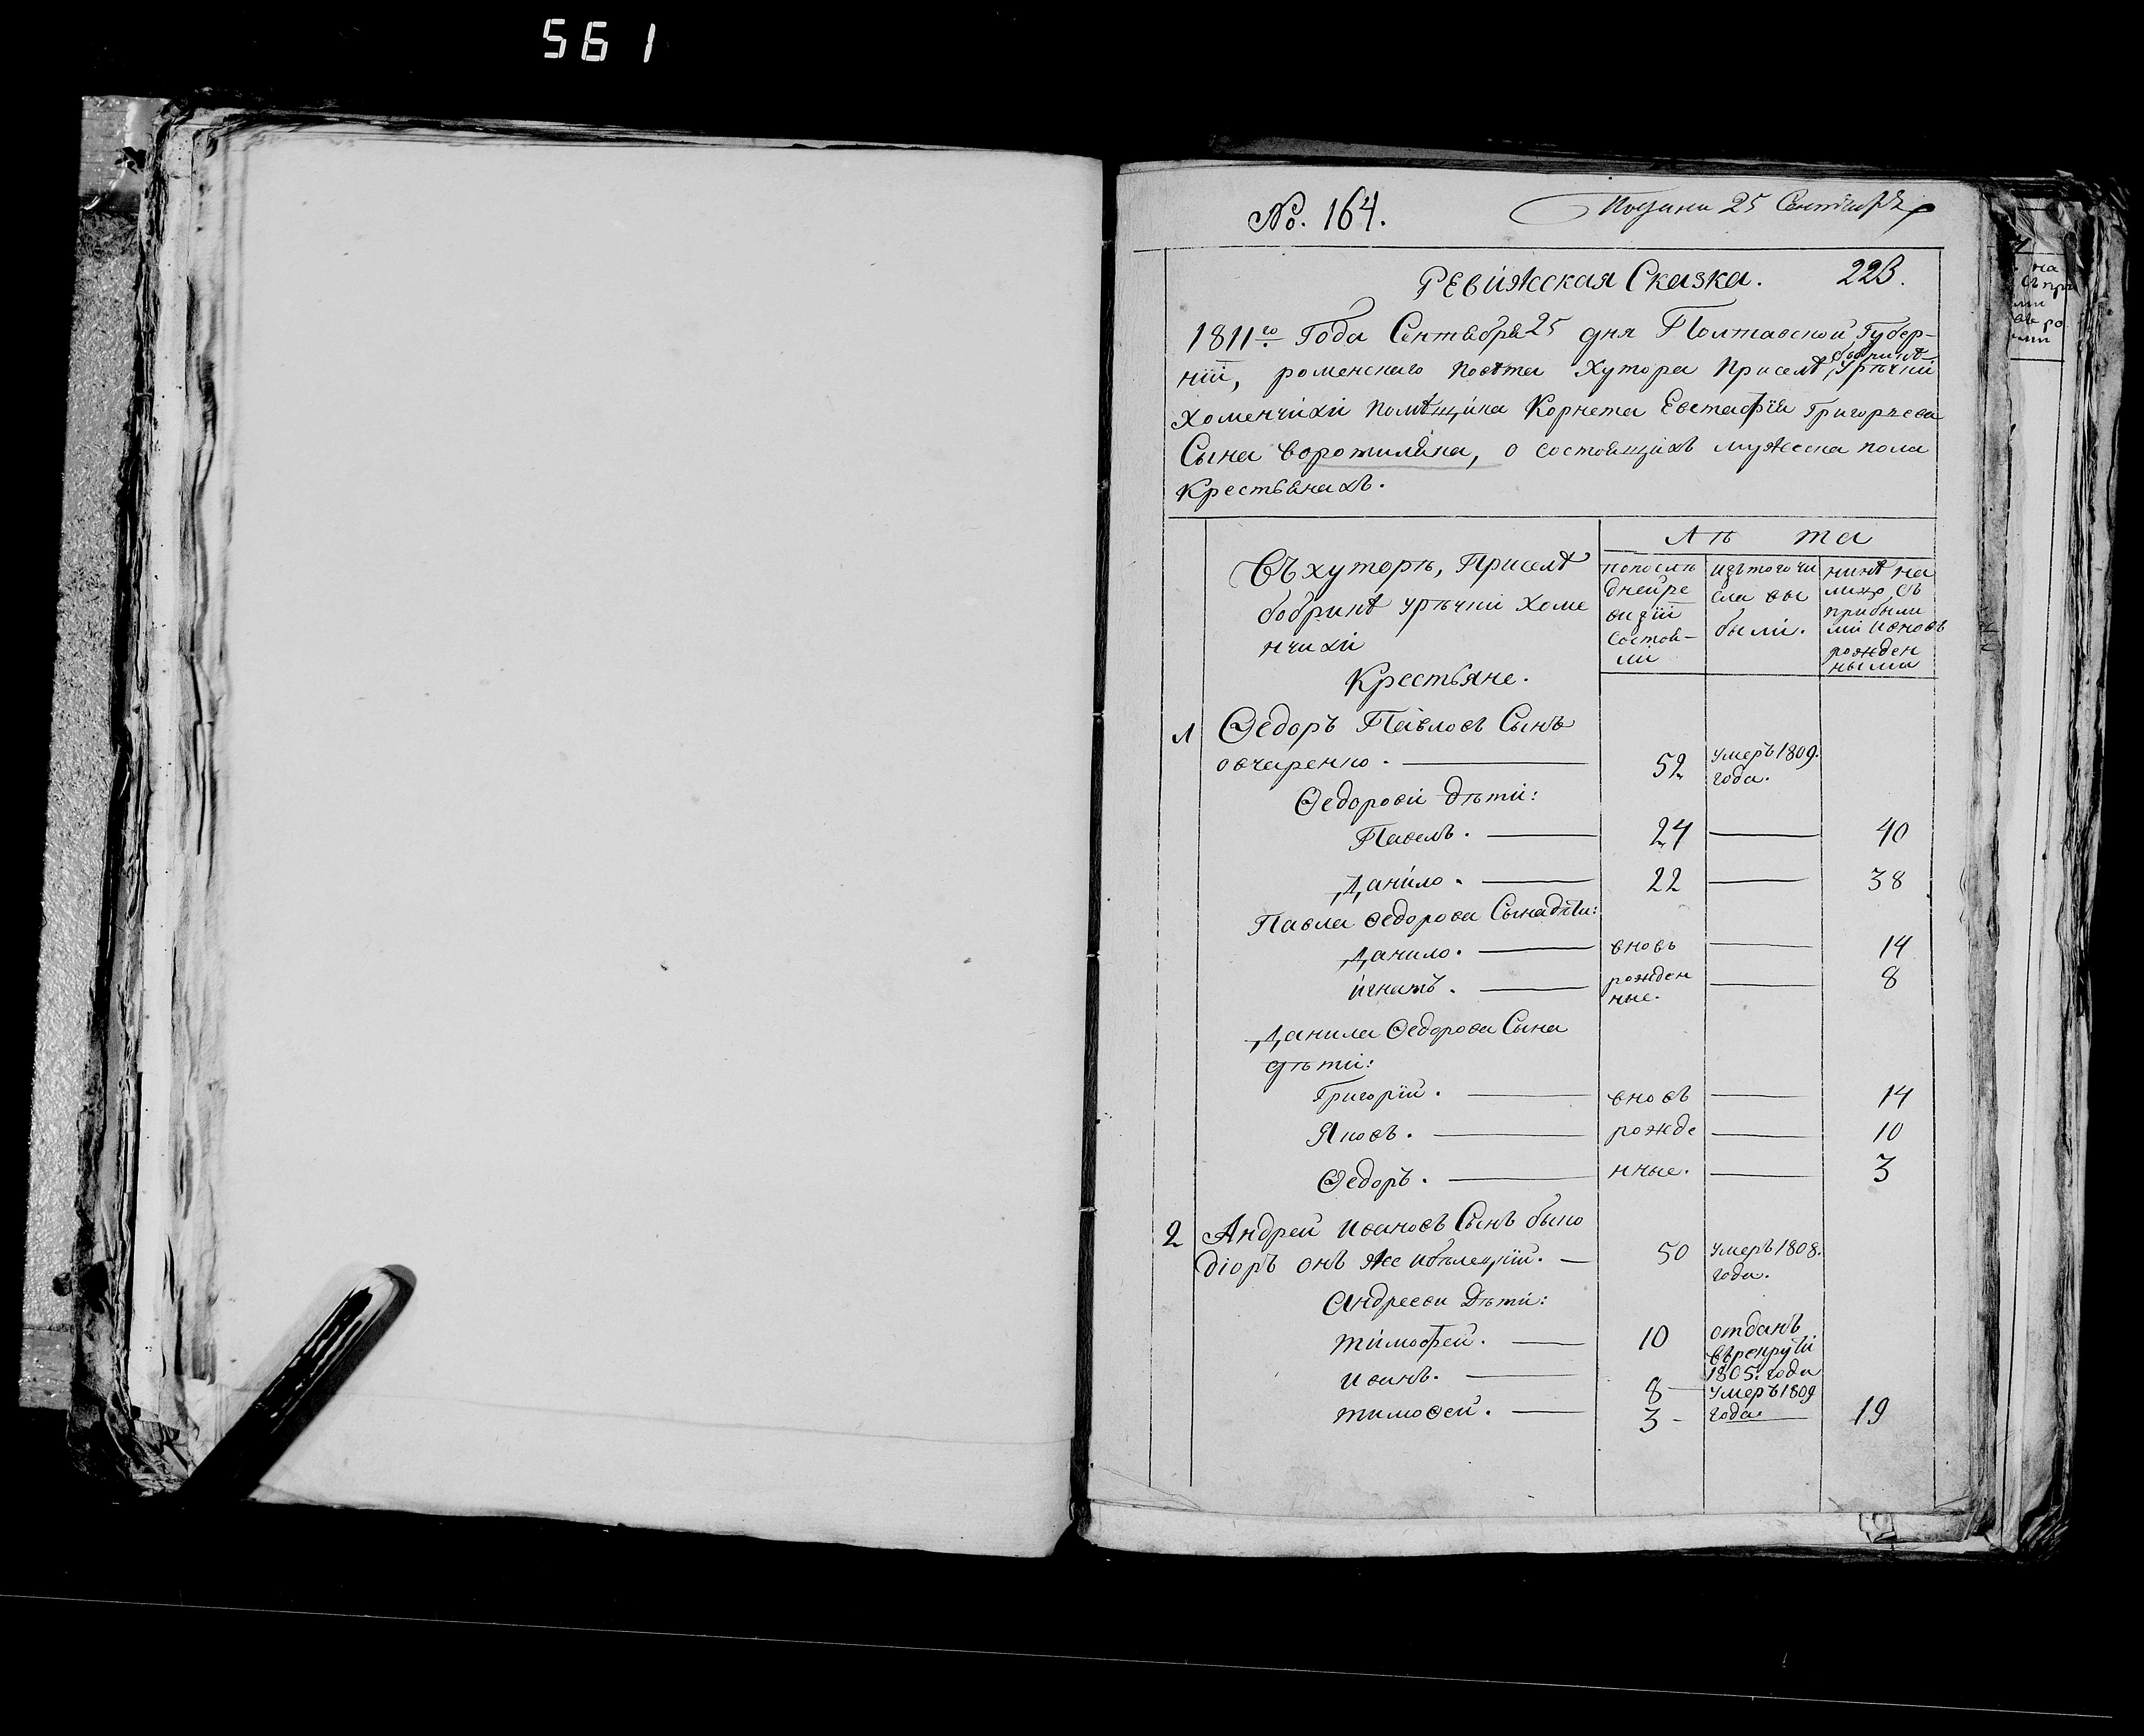 561
No. 164. 25 Сентября
Ревижская Сказка. 223.
1811го Года Сентября 25 дня Полтавской Губер-
нїи, роменскаго повѣта Хутора Приселѣ, бобринѣ, урѣчки
Хоменчихи помѣщика Корнета Евстафїя Григорьева
Сына воротиляка, о состоящихъ мужеска пола
Крестьянахъ.
Лѣта
въ хуторѣ, Приселѣ
бобринѣ урѣчки Хоме
нчихи
Крестьяне.
попослѣ
днейре
визїи
состоя-
ли
изътогочи
сла вы
были.
нинѣ на
лицо, съ
прибыли
ми ивновь
рожден
ными
1 Ѳедоръ Павловъ Сынъ
овчаренко. 52 умеръ 1809.
года.
Ѳедорови дѣти:
Павелъ. 24 40
Данило. 22 38
Павла Ѳедорова Сына дѣти:
Данило. вновь 14
игнатъ. рожден 8
ные.
Данила Ѳедорова Сына
дѣти:
Григорїй. вновъ 14
Яковъ. рожде 10
Ѳедоръ. нные. 3
2 Андрей Ивановъ Сынъ быко
дїоръ онъ же 50 умеръ 1808.
года.
Андрееви Дѣти:
тимофей. 10 отданъ
въ рекруты
1805: года
иванъ. 8 умеръ 1809
тимоѳей. 3 года. 19